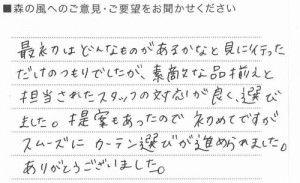 ■森の風へのご意見・ご要望をお聞かせください
最初はどんなものがあるかなと見に行った
だけのつもりでしたが、素敵な品揃えと
担当されたスタッフの対応が良く、選び
ました。提案もあったので初めてですが
スムーズにカーテン選びが進められました。
ありがとうございました。